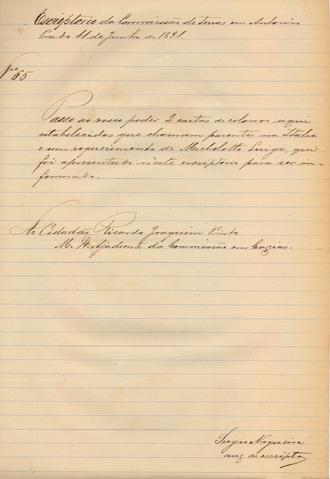 Escriptorio da Commissão de terras em Antonio
Prado 11 de Junho de 1891.
Nº 65
Passo ao vosso poder 2 cartas de colonos aqui
estabelecidos que chamam parentes na Italia
e um requerimento de Michelotto Luigi, que
foi apresentado n'este escriptorio para ser in-
formado.
Ao Cidadão Ricardo Joaquim Pinto
M. D. Ajudante da Commissão em Caxias.
Sergio Nogueira
aux. de escripta